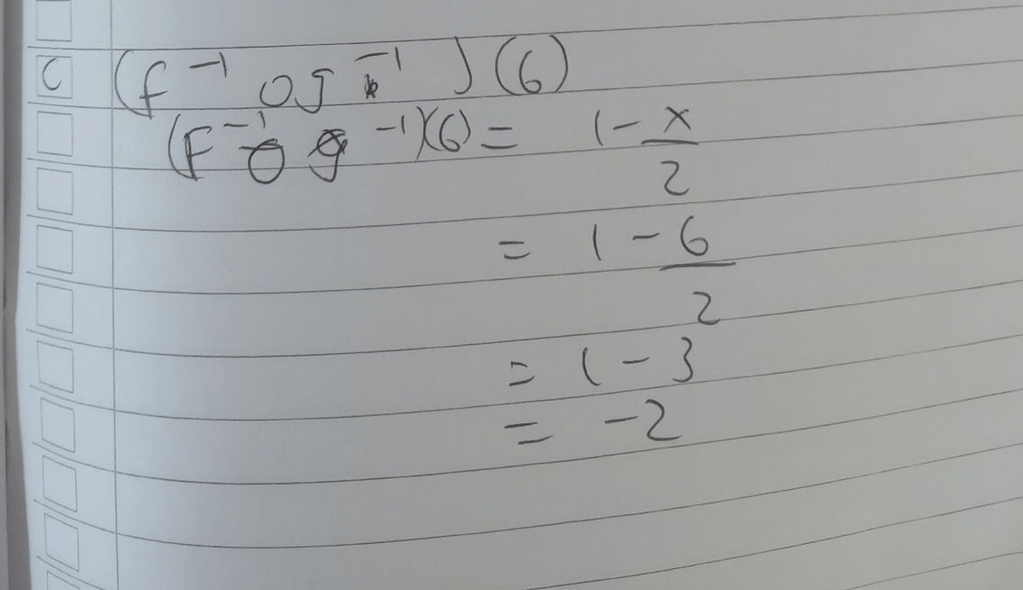 C (f⁻¹ o g⁻¹)(6)
(F⁻¹ o g⁻¹)(6) = 1 - x/2
= 1 - 6/2
= 1 - 3
= -2